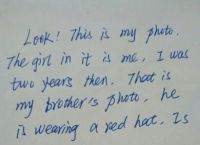 Look! This is my photo.
The girl in it is me. I was
two years then. That is
my brother's photo. he
is wearing a red hat. Is